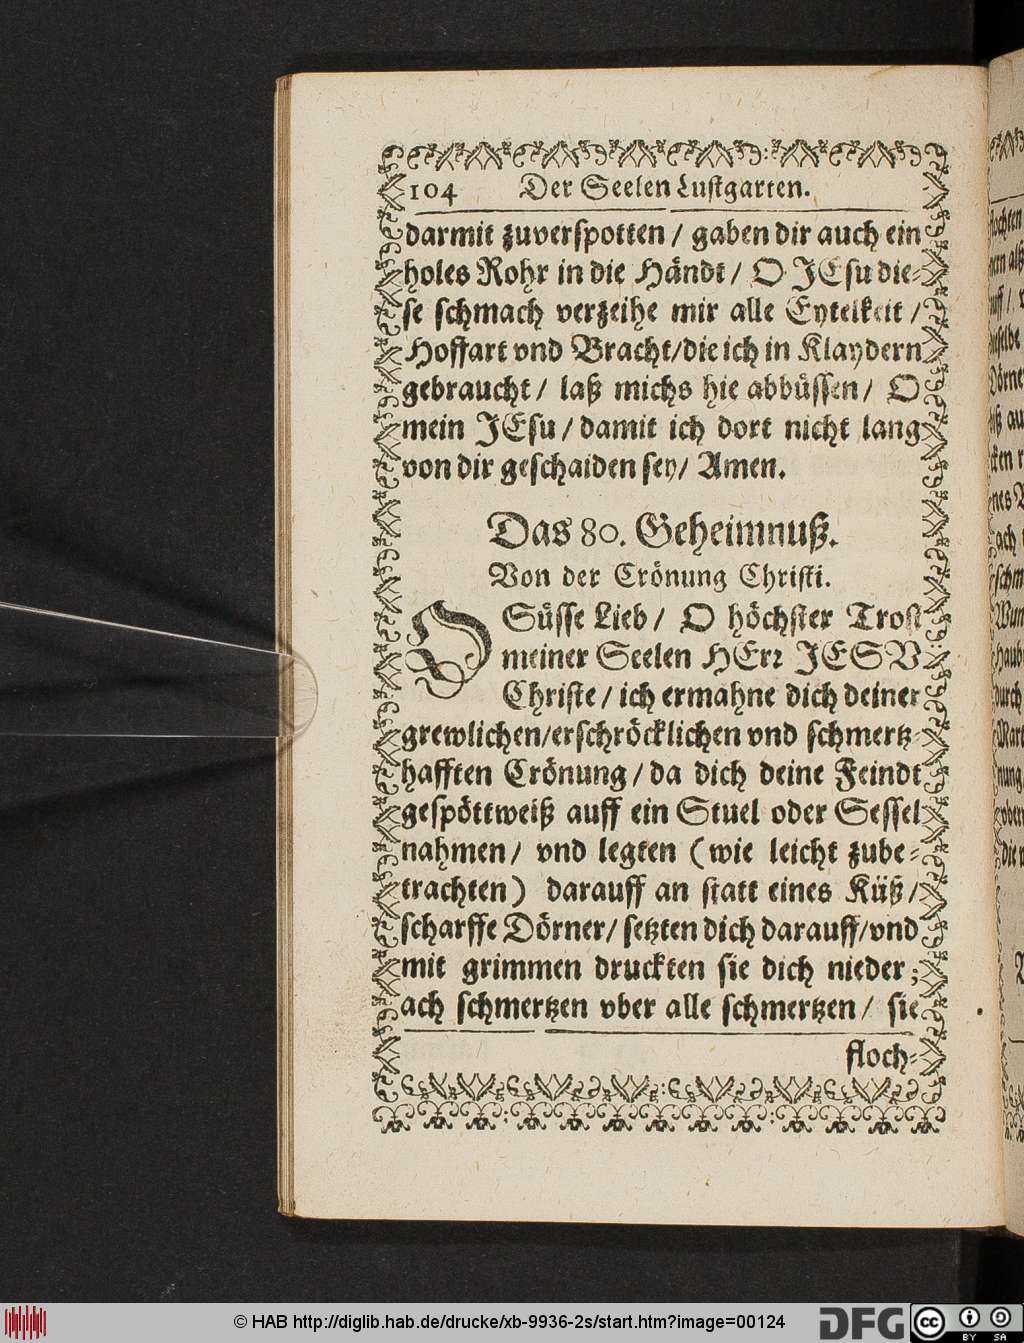 104 Der Seelen Lustgarten.
darmit zuverspotten / gaben dir auch ein
holes Rohr in die Händt / O JEsu die-
se schmach verzeihe mir alle Eytelkeit /
Hoffart vnd Bracht / die ich in Klaydern
gebraucht / laß michs hie abbüssen / O
mein JEsu / damit ich dort nicht lang
von dir geschaiden sey / Amen.
Das 80. Geheimnuß.
Von der Crönung Christi.
O Süsse Lieb / O höchster Trost
meiner Seelen HErr JESV
Christe / ich ermahne dich deiner
grewlichen / erschröcklichen vnd schmertz-
hafften Crönung / da dich deine Feindt
gespöttweiß auff ein Stuel oder Sessel
nahmen / vnd legten (wie leicht zube-
trachten) darauff an statt eines Küß /
scharffe Dörner / setzten dich darauff / vnd
mit grimmen druckten sie dich nieder;
ach schmertzen vber alle schmertzen / sie
floch-
© HAB http://diglib.hab.de/drucke/xb-9936-2s/start.htm?image=00124
DFG
cc
BY SA